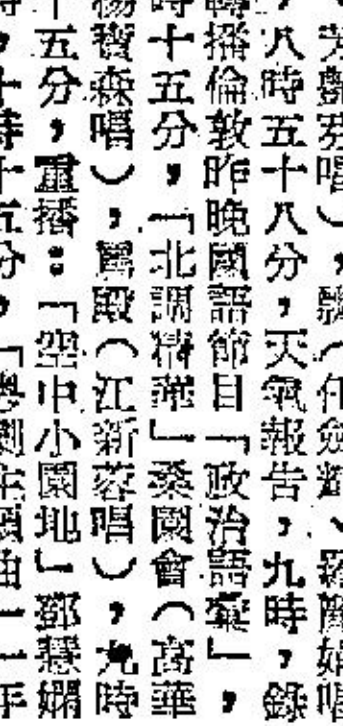 芳艷芬唱），𩗗（任劍輝、羅麗娟唱
，八時五十八分，天氣報告，九時，錄
轉播倫敦昨晚國語節目「政治語彙」，
時十五分，「北調精華」桑園會（高華
楊寶森唱），罵殿（江新蓉唱），九時
十五分，重播：「空中小園地」鄧慧嫻
，十時十五分，「粵劇主題曲——年